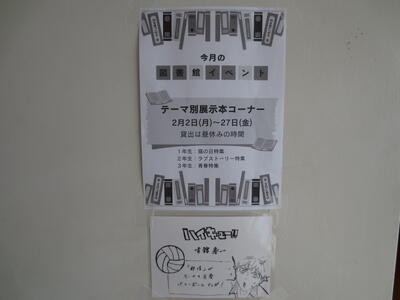 今月の
図書館イベント
テーマ別展示本コーナー
2月2日(月)～27日(金)
貸出は昼休みの時間
1年生：猫の日特集
2年生：ラブストーリー特集
3年生：青春特集
ハイキュー!!
古舘春一